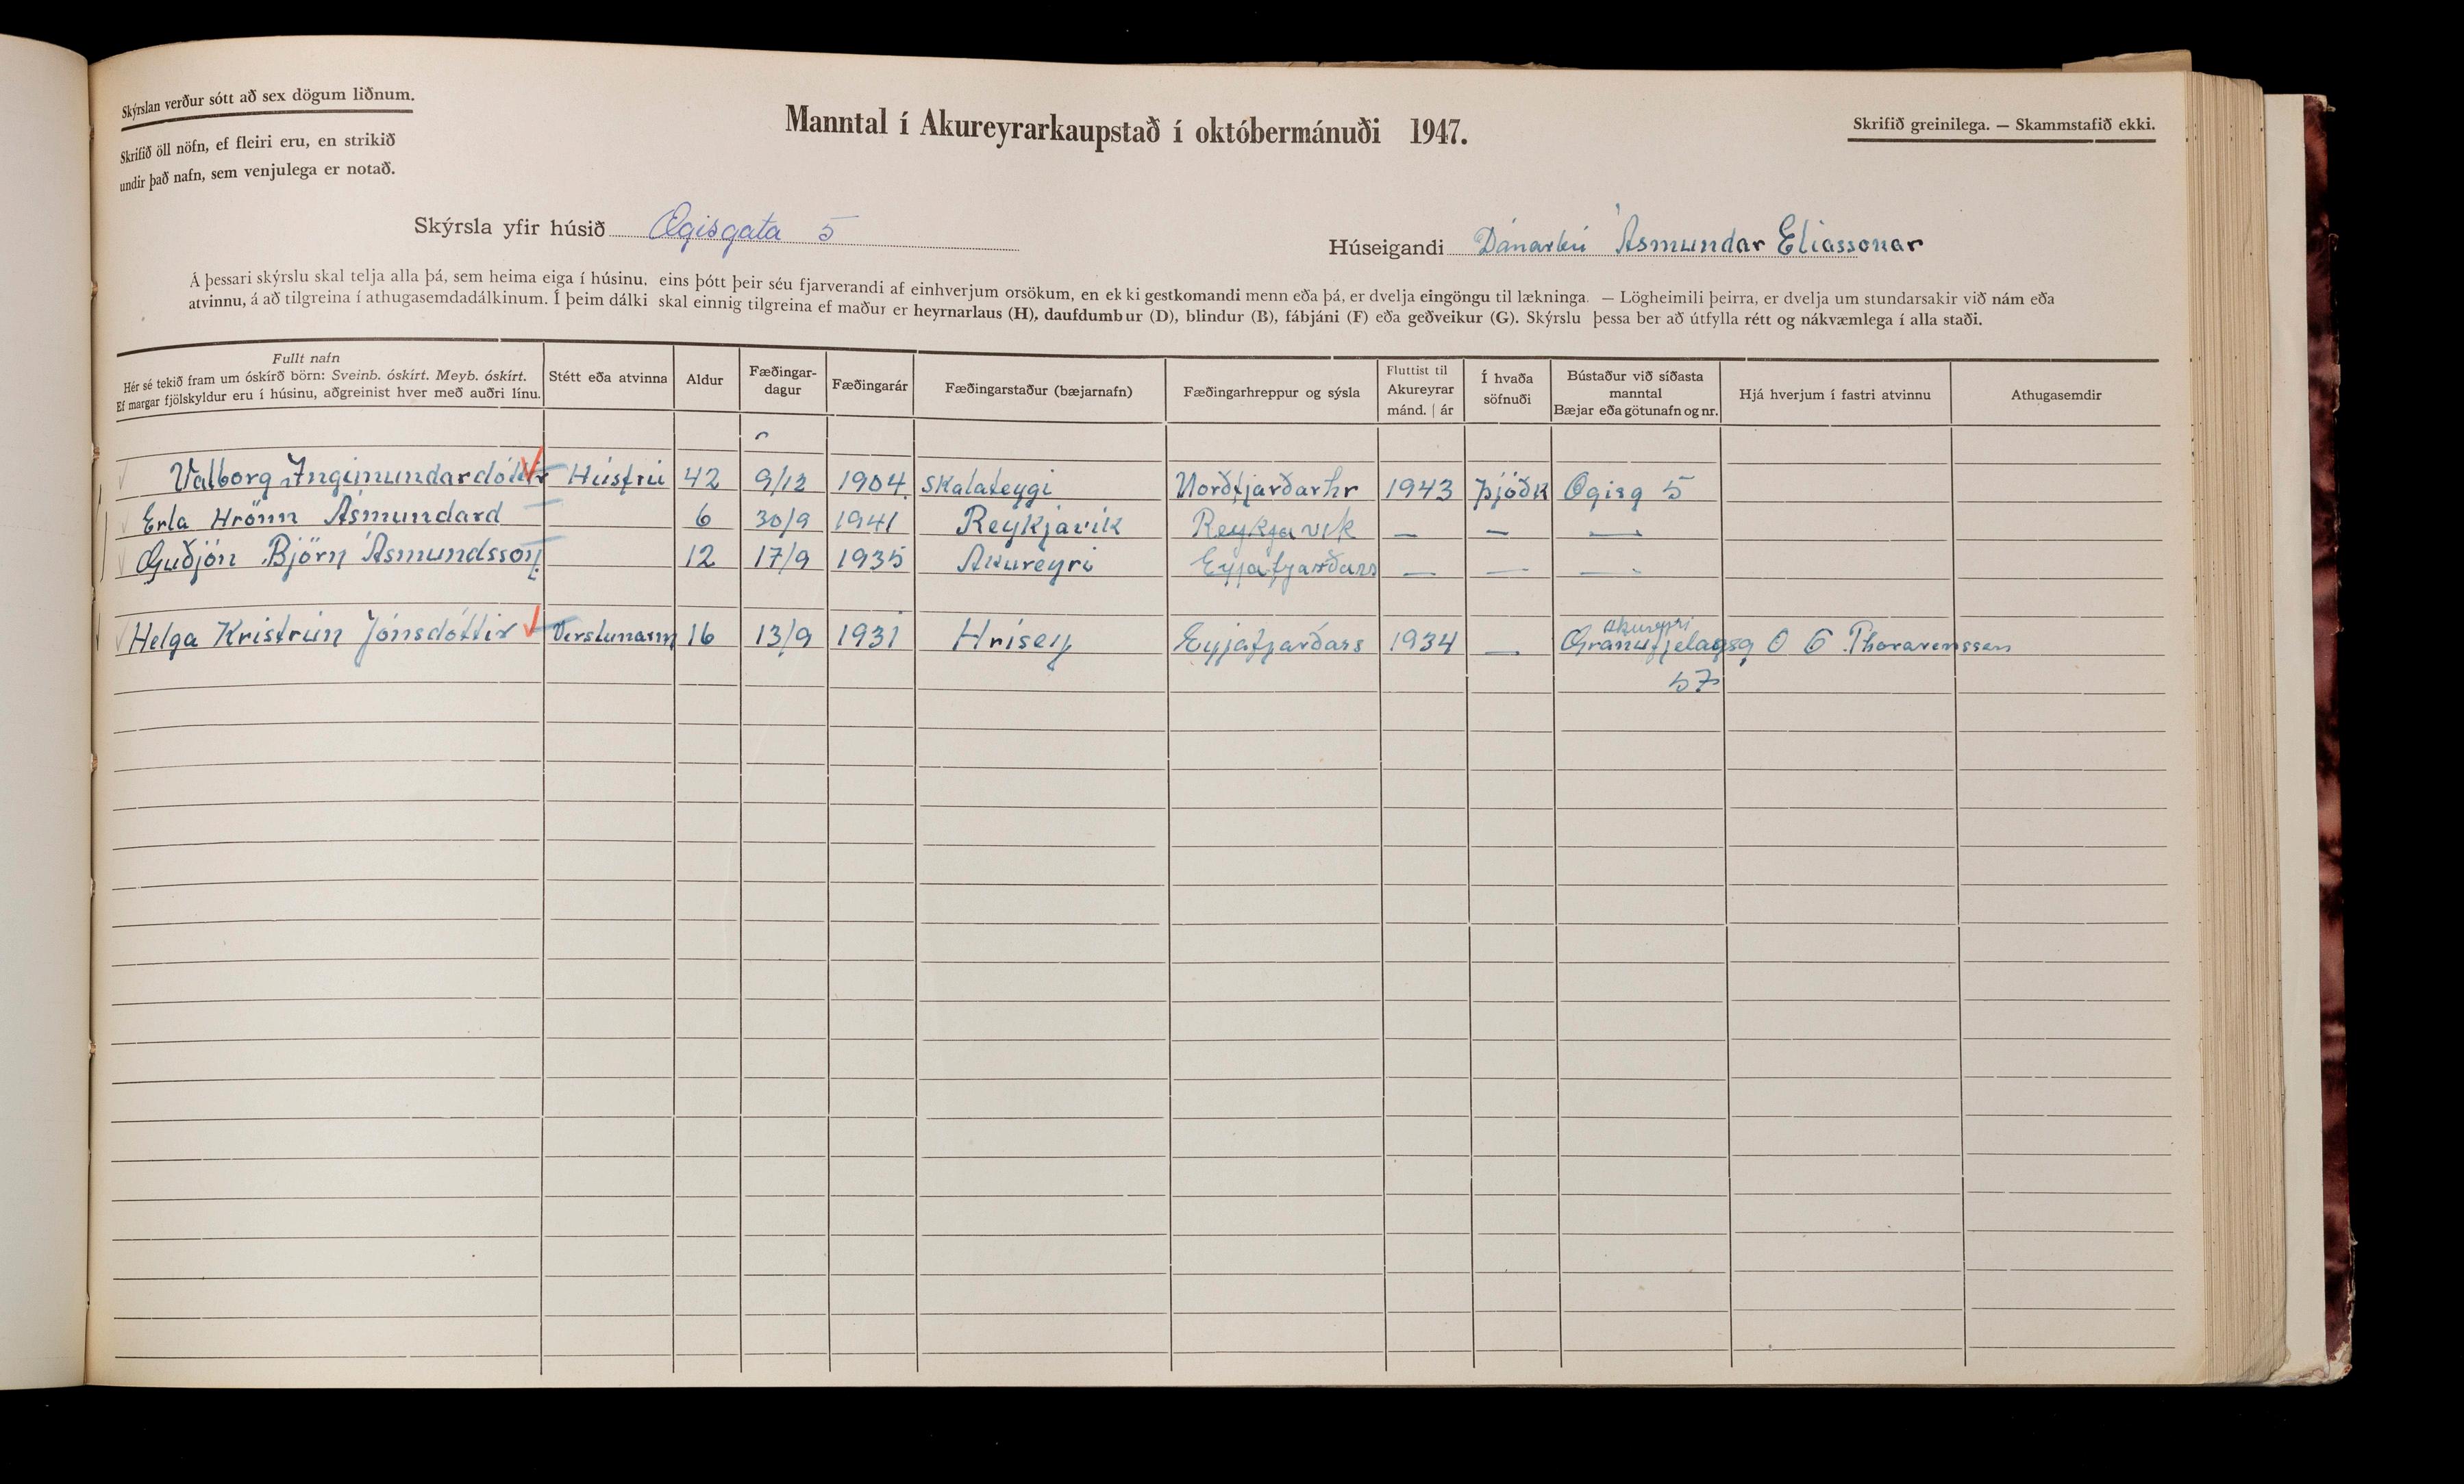 Skýrslan verður sótt að sex dögum liðnum.
Skrifið öll nöfn, ef fleiri eru, en strikið
undir það nafn, sem venjulega er notað.
Manntal í Akureyrarkaupstað í októbermánuði 1947.
Skrifið greinilega. — Skammstafið ekki.
Skýrsla yfir húsið Ægisgata 5
Húseigandi Dánarbú Ásmundar Elíassonar
Á þessari skýrslu skal telja alla þá, sem heima eiga í húsinu, eins þótt þeir séu fjarverandi af einhverjum orsökum, en ekki gestkomandi menn eða þá, er dvelja eingöngu til lækninga. — Lögheimili þeirra, er dvelja um stundarsakir við nám eða
atvinnu, á að tilgreina í athugasemdadálkinum. Í þeim dálki skal einnig tilgreina ef maður er heyrnarlaus (H), daufdumbur (D), blindur (B), fábjáni (F) eða geðveikur (G). Skýrslu þessa ber að útfylla rétt og nákvæmlega í alla staði.
Fullt nafn
Hér sé tekið fram um óskírð börn: Sveinb. óskírt. Meyb. óskírt.
Ef margar fjölskyldur eru í húsinu, aðgreinist hver með auðri línu.
Stétt eða atvinna
Aldur
Fæðingar-
dagur
Fæðingarár
Fæðingarstaður (bæjarnafn)
Fæðingarhreppur og sýsla
Fluttist til
Akureyrar
mánd. | ár
Í hvaða
söfnuði
Bústaður við síðasta
manntal
Bæjar eða götunafn og nr.
Hjá hverjum í fastri atvinnu
Athugasemdir
Valborg Ingimundardóttir Húsfrú 42 9/12 1904 Skalateygi Norðfjarðarhr 1943 Þjóðk Ægisg 5
Erla Hrönn Ásmundard 6 30/9 1941 Reykjavík Reykjavík — — —
Guðjón Björn Ásmundsson 12 17/9 1935 Akureyri Eyjafjarðars — — —
Helga Kristrún Jónsdóttir 16 13/9 1931 Hrísey Eyjafjarðars 1934 — Akureyri
Gránufjelagsg Ó G Thorarenssen
57